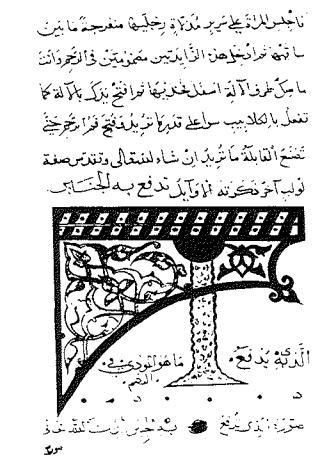 فاجلس المراة على سرير مدلاة رجليها منفرجة ما بين
ساقيها ثم ادخل هذين الزايدتين مضمومتين في الرحم وانت
ماسك طرف الآلة اسفل عند فخذيها ثم افتح يدك بالآلة كما
تفعل بالكلاليب سوا على قدر ما تريد فتح فم الرحم حتى
تصنع القابلة ما تريد ان شاء الله تعالى وتقدس صفة
لولب آخر ذكرته الاوايل تدفع به الجنين
الذي يدفع
ما هو المودي في
الرحم
صورة الذي يدفع به الجنين